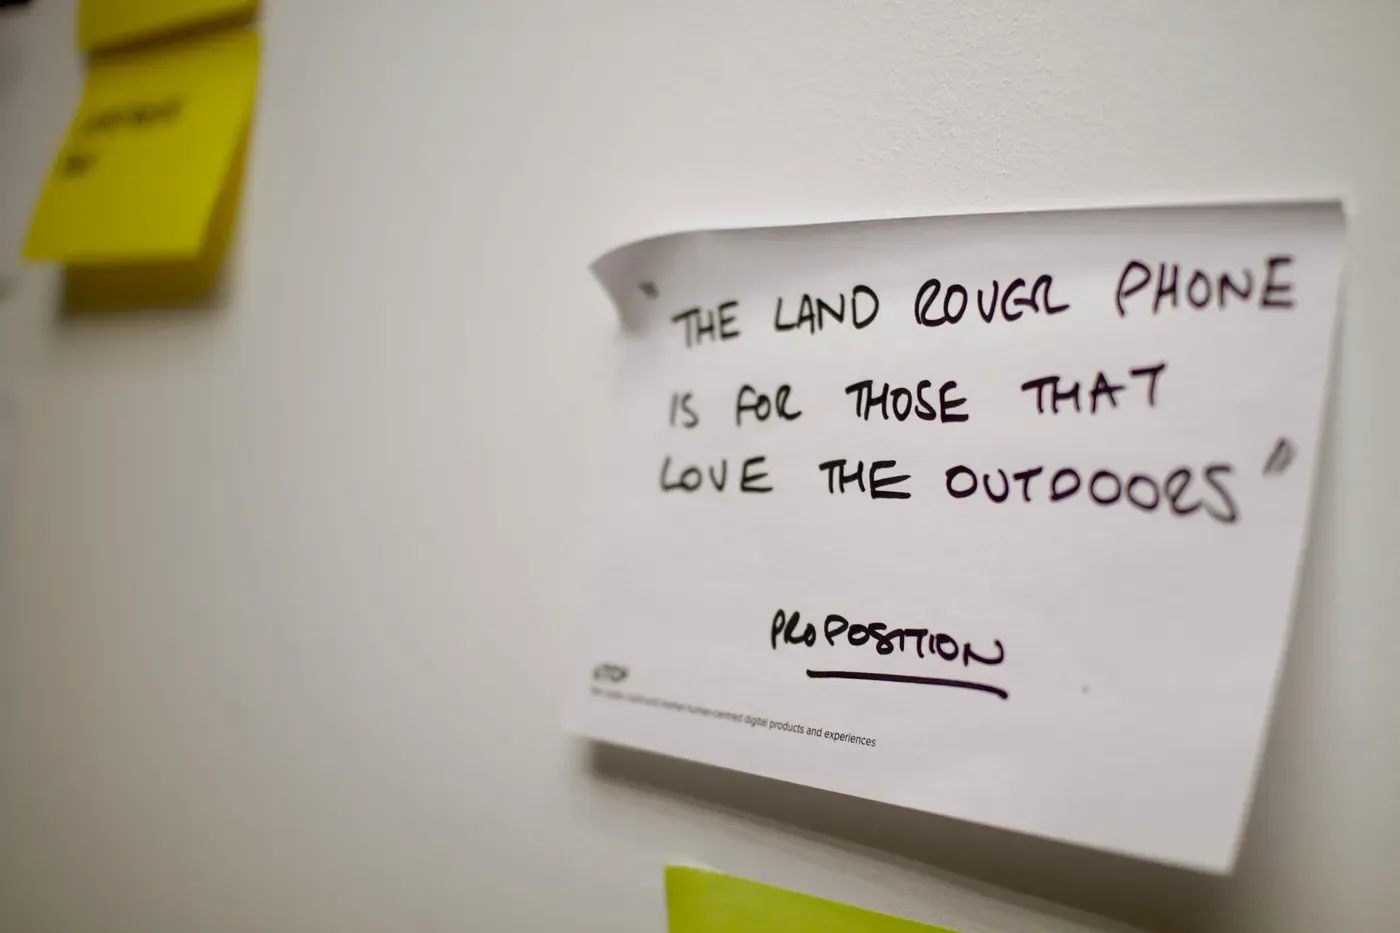 " THE LAND ROVER PHONE
IS FOR THOSE THAT
LOVE THE OUTDOORS "
PROPOSITION
USTWO
human-centred digital products and experiences